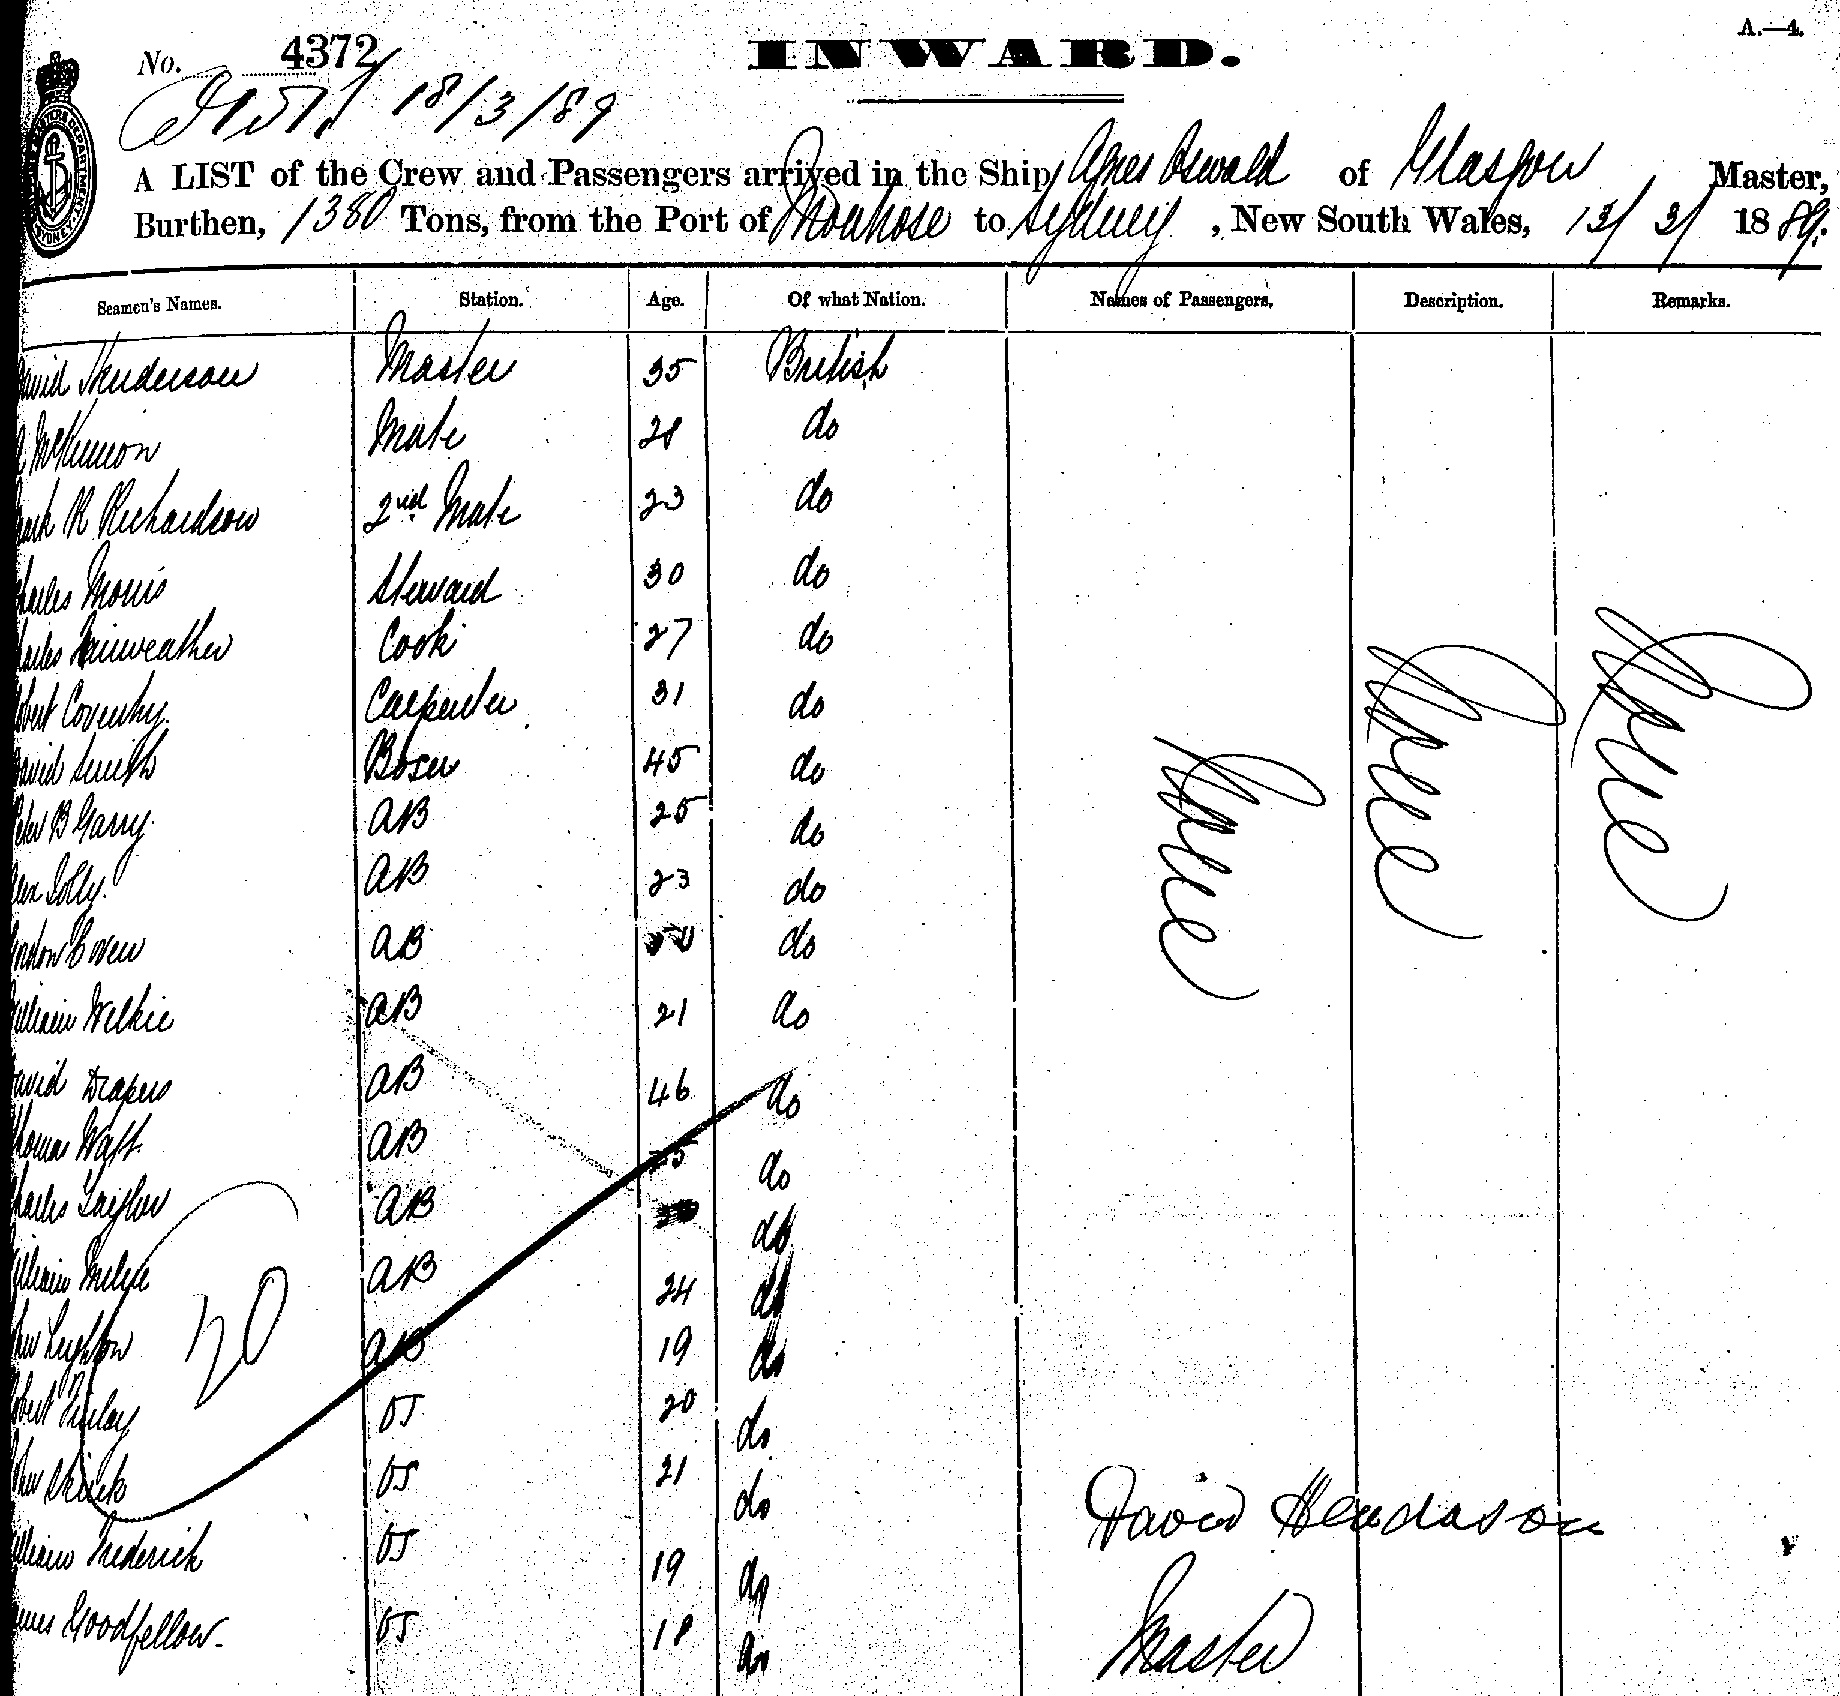 A.—4.
No. 4372
INWARD.
18/3/89
A LIST of the Crew and Passengers arrived in the Ship Agnes Oswald of Glasgow Master,
Burthen, 1380 Tons, from the Port of Montrose to Sydney, New South Wales, 13/3/1889.
Seamen's Names. Station. Age. Of what Nation. Names of Passengers. Description. Remarks.
David Henderson Master 35 British
McKinnon Mate 28 do
R Richardson 2nd Mate 23 do
Charles Morris Steward 30 do
Charles Fairweather Cook 27 do
Robert Coventry Carpenter 31 do
David Smith Bosn 45 do
Peter B Garry AB 25 do
Alex Jolly AB 23 do
Gordon Cowen AB do
William Welkie AB 21 do
David Drapers AB 46 do
Thomas Watt AB 25 do
Charles Taylor AB do
William Milne AB 24 do
Leighton AB 19 do
Robert Finlay OS 20 do
OS 21 do
William Frederick OS 19 do
James Goodfellow OS 18 do
None None None
20
David Henderson
Master